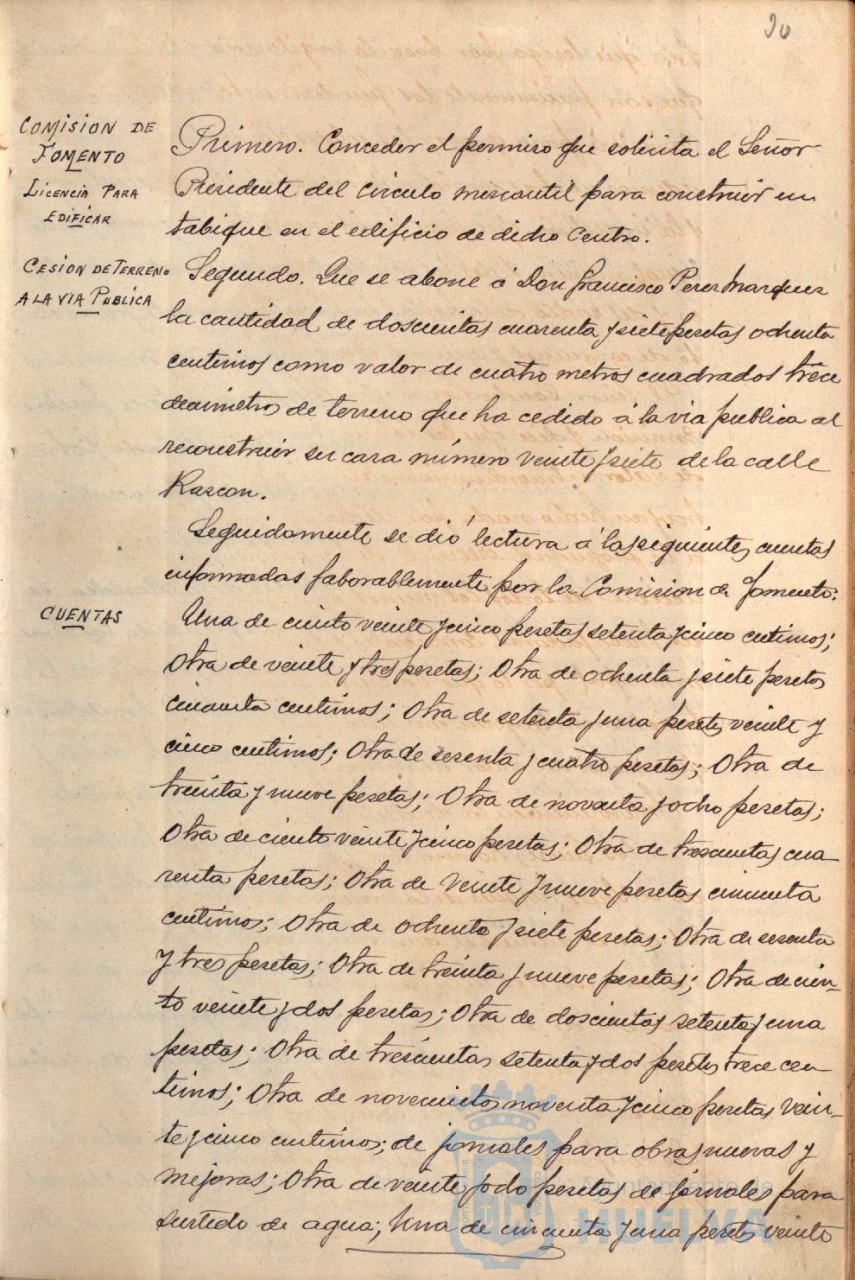 90
COMISION DE
FOMENTO
LICENCIA PARA
EDIFICAR
Primero. Conceder el permiso que solicita el Señor
Presidente del Circulo mercantil para construir un
tabique en el edificio de dicho Centro.
CESION DE TERRENO
A LA VIA PUBLICA
Segundo. Que se abone á Don Francisco Perez Marquez
la cantidad de doscientas cuarenta y siete pesetas ochenta
centimos como valor de cuatro metros cuadrados trece
decimetros de terreno que ha cedido á la via publica al
reconstruir su casa número veinte y siete de la calle
Rascon.
Seguidamente se dió lectura á las siguientes cuentas
informadas faborablemente por la Comision de Fomento:
CUENTAS
Una de ciento veinte y cinco pesetas setenta y cinco centimos;
Otra de veinte y tres pesetas; Otra de ochenta y siete pesetas
cincuenta centimos; Otra de setenta y una pesetas veinte y
cinco centimos; Otra de sesenta y cuatro pesetas; Otra de
treinta y nueve pesetas; Otra de noventa y ocho pesetas;
Otra de ciento veinte y cinco pesetas; Otra de trescientas cua
renta pesetas; Otra de veinte y nueve pesetas cincuenta
centimos; Otra de ochenta y siete pesetas; Otra de sesenta
y tres pesetas; Otra de treinta y nueve pesetas; Otra de cien-
to veinte y dos pesetas; Otra de doscientas setenta y una
pesetas; Otra de trescientas setenta y dos pesetas trece cen
timos; Otra de novecientos noventa y cinco pesetas vein-
te y cinco centimos; de jornales para obras nuevas y
mejoras; Otra de veinte y ocho pesetas de jornales para
surtido de agua; Una de cincuenta y una pesetas veinte
Ayuntamiento de
HUELVA